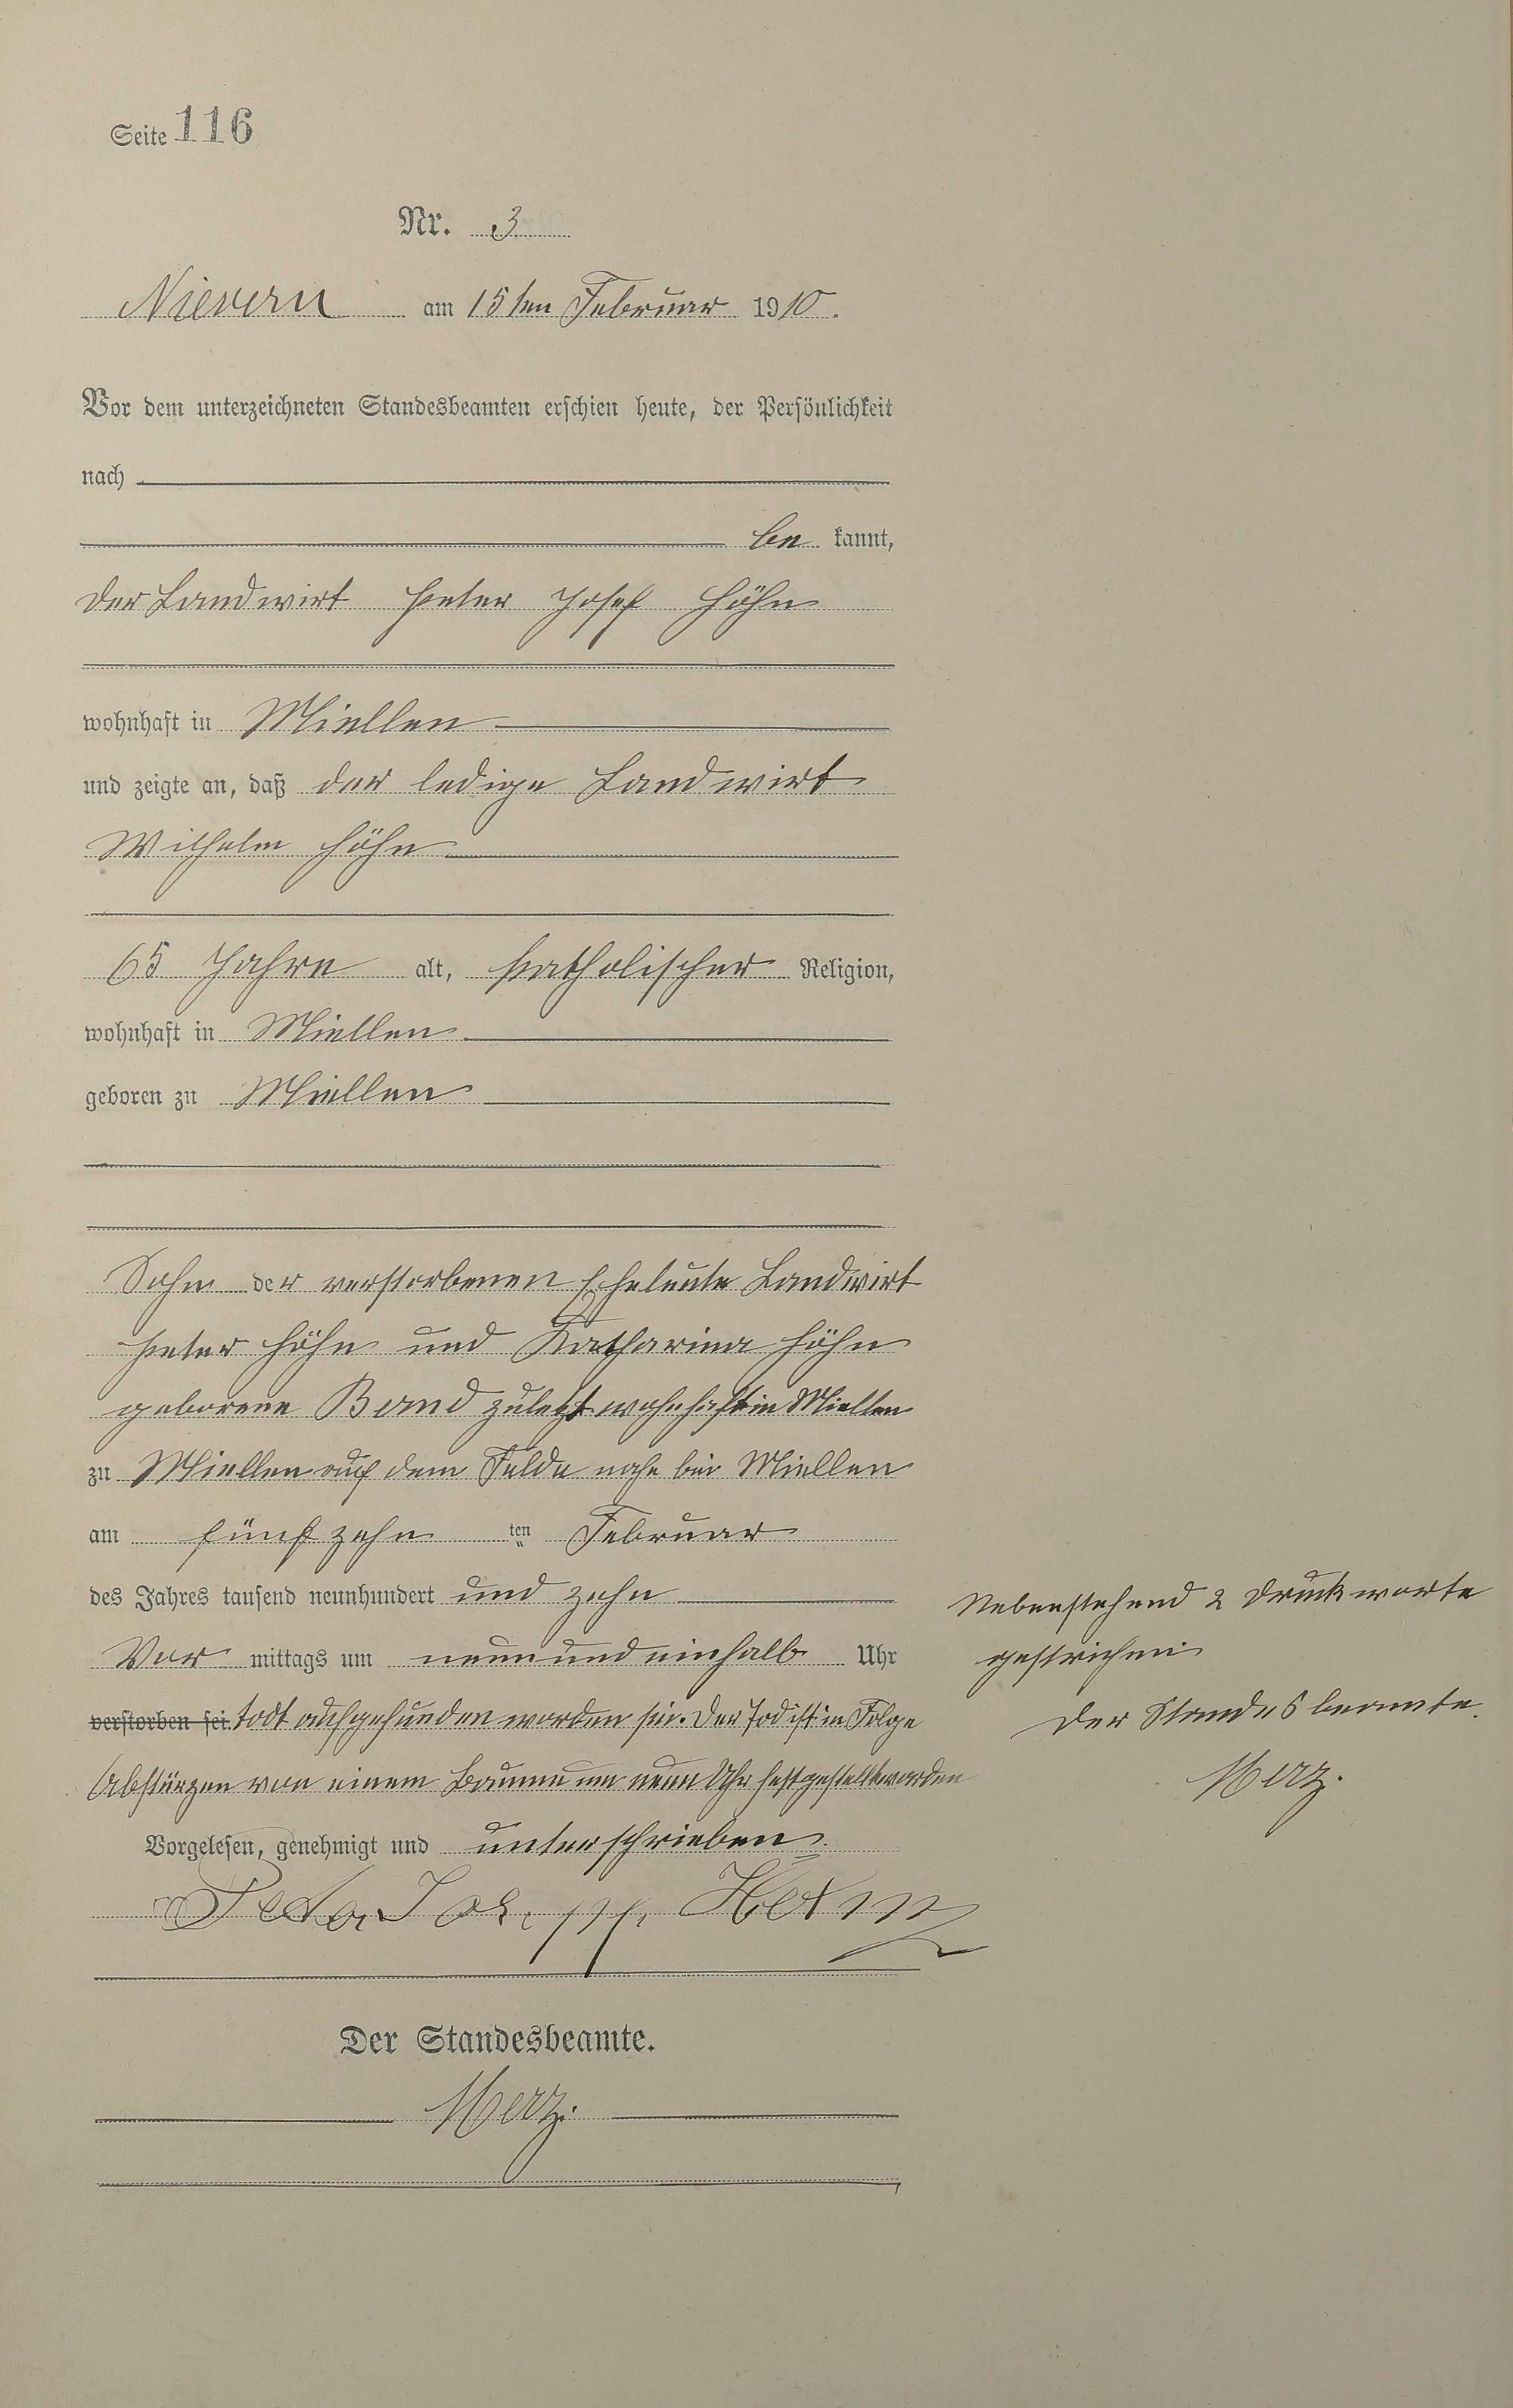 Seite 116
Nr. 3
Nievern am 15ten Februar 1910.
Vor dem unterzeichneten Standesbeamten erschien heute, der Persönlichkeit
nach
be kannt,
der Landwirt Peter Josef Höhn
wohnhaft in Miellen
und zeigte an, daß der ledige Landwirt
Wilhelm Höhn
65 Jahre alt, katholischer Religion,
wohnhaft in Miellen
geboren zu Miellen
Sohn der verstorbenen Eheleute Landwirt
Peter Höhn und Katharina Höhn
geborene Band zuletzt wohnhaft in Miellen
zu Miellen auf dem Felde nahe bei Miellen
am fünfzehn ten Februar
des Jahres tausend neunhundert und zehn
Vor mittags um neun und einhalb Uhr
verstorben sei. todt aufgefunden worden sei. Der Tod ist in Folge
Abstürzen von einem Baume um neun Uhr festgestellt worden
Nebenstehend 2 Druckworte
gestrichen
Der Standesbeamte.
Merz.
Vorgelesen, genehmigt und unterschrieben.
Peter Josepf Höhn
Der Standesbeamte.
Merz.